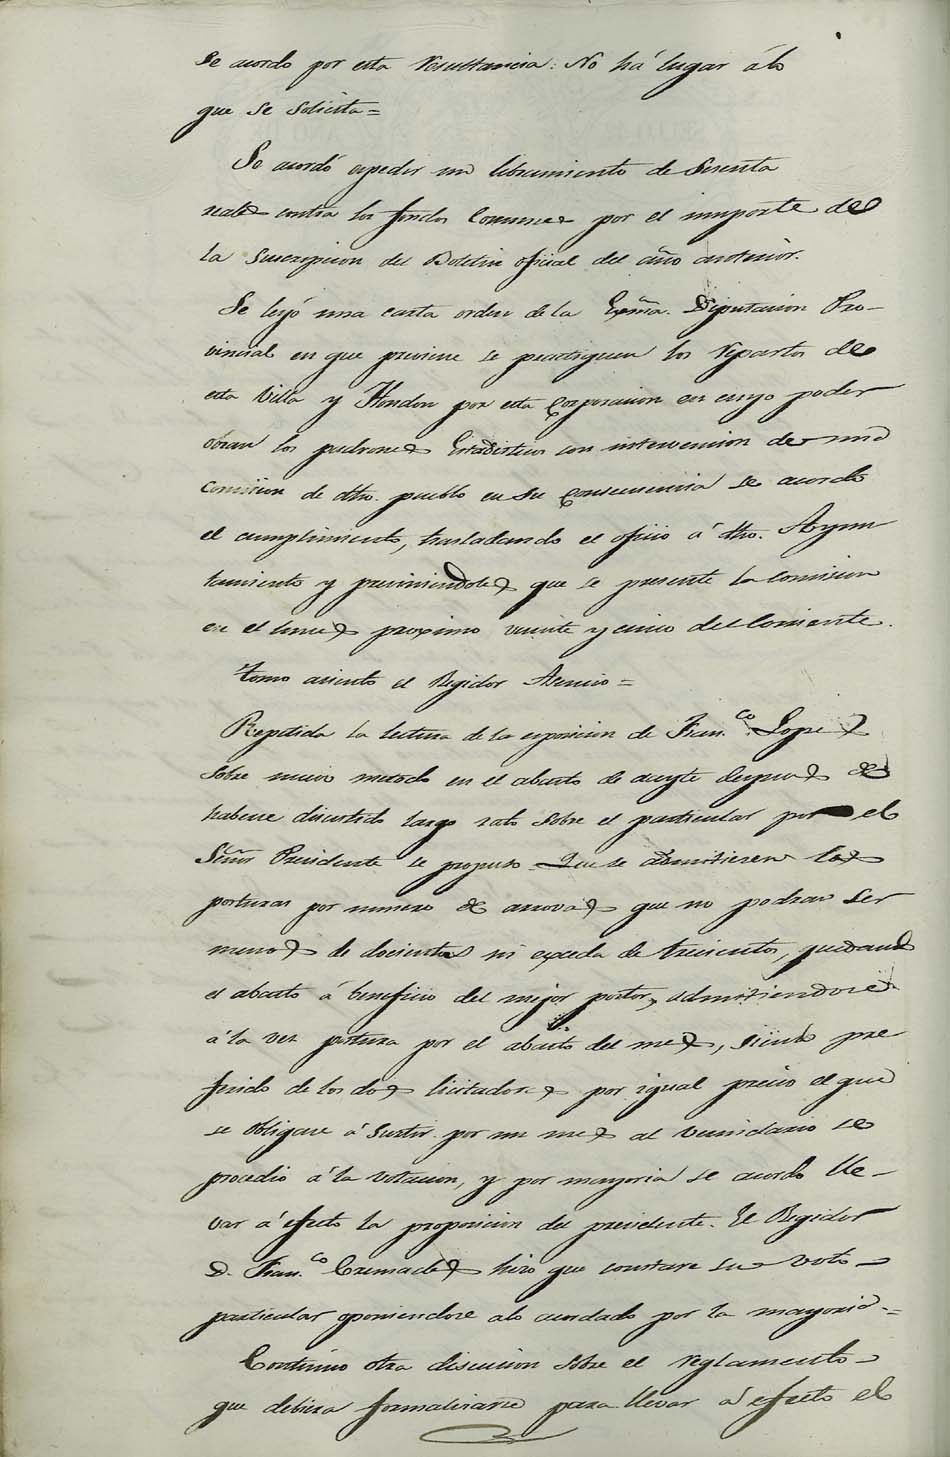 Se acordo por esta resultancia: No há lugar álo
que se solicita=
Se acordó expedir un libramiento de Sesenta
reales contra los fondos Comunes por el importe de
la Suscripcion del Boletin oficial del año anterior.
Se leyó una carta orden de la Exma. Diputacion Pro-
vincial en que previene se practiquen los repartos de
esta Villa y Hondon por esta Corporacion en cuyo poder
obran los padrones Estadisticos con intervencion de una
comision de dho. pueblo en su consecuencia se acordo
el cumplimiento, trasladando el oficio á dho. Ayun
tamiento y previniendoles que se presente la comision
en el lunes proximo veinte y cinco del Corriente.
Tomo asiento el Regidor Asencio=
Repetida la lectura de la exposicion de Fran.co Lopes
sobre nuevo metodo en el abasto de aceyte despues de
haberse discutido largo rato sobre el particular por el
Señor Presidente se propuso Que se admitiesen las
posturas por numero de arrovas que no podran ser
menos de docientas ni exceda de trecientos, quedando
el abasto á beneficio del mejor postor, admitiendose
á la vez postura por el abasto del mes, siendo pre
ferido de los dos licitadores por igual precio el que
se obligare á surtir por un mes al vecindario se
procedió á la votacion, y por mayoria se acordo lle-
var á efecto la proposicion del presidente. El Regidor
D. Fran.co Cremades hizo que constare su voto
particular oponiendose alo acordado por la mayoria.=
Continuo otra discusion sobre el reglamento
que debiera formalisarse para llevar á efecto el